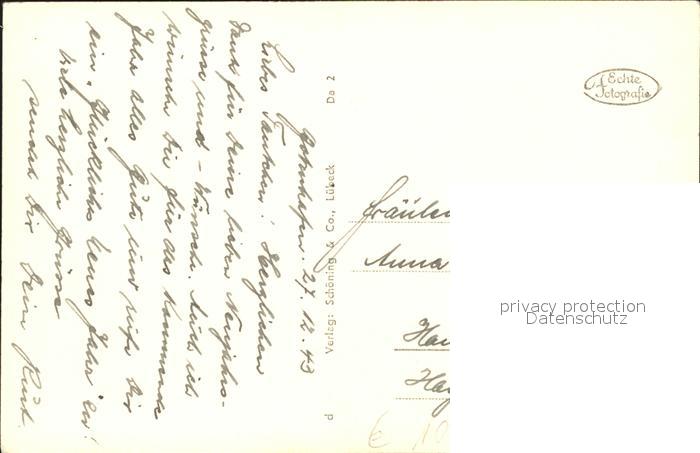 27. 12. 43
Liebes Tantchen! Herzlichen
Dank für Deine lieben Neujahrs-
grüsse und - Wünsche. Auch ich
wünsche Dir für das kommende
Jahr alles Gute und rufe Dir
ein „Glückliches neues Jahr" zu!
Viele herzliche Grüsse
sendet Dir Dein
d Verlag: Schöning & Co., Lübeck Da 2
Echte
Fotografie
Fräulei
Anna
Ha
Ha
privacy protection
Datenschutz